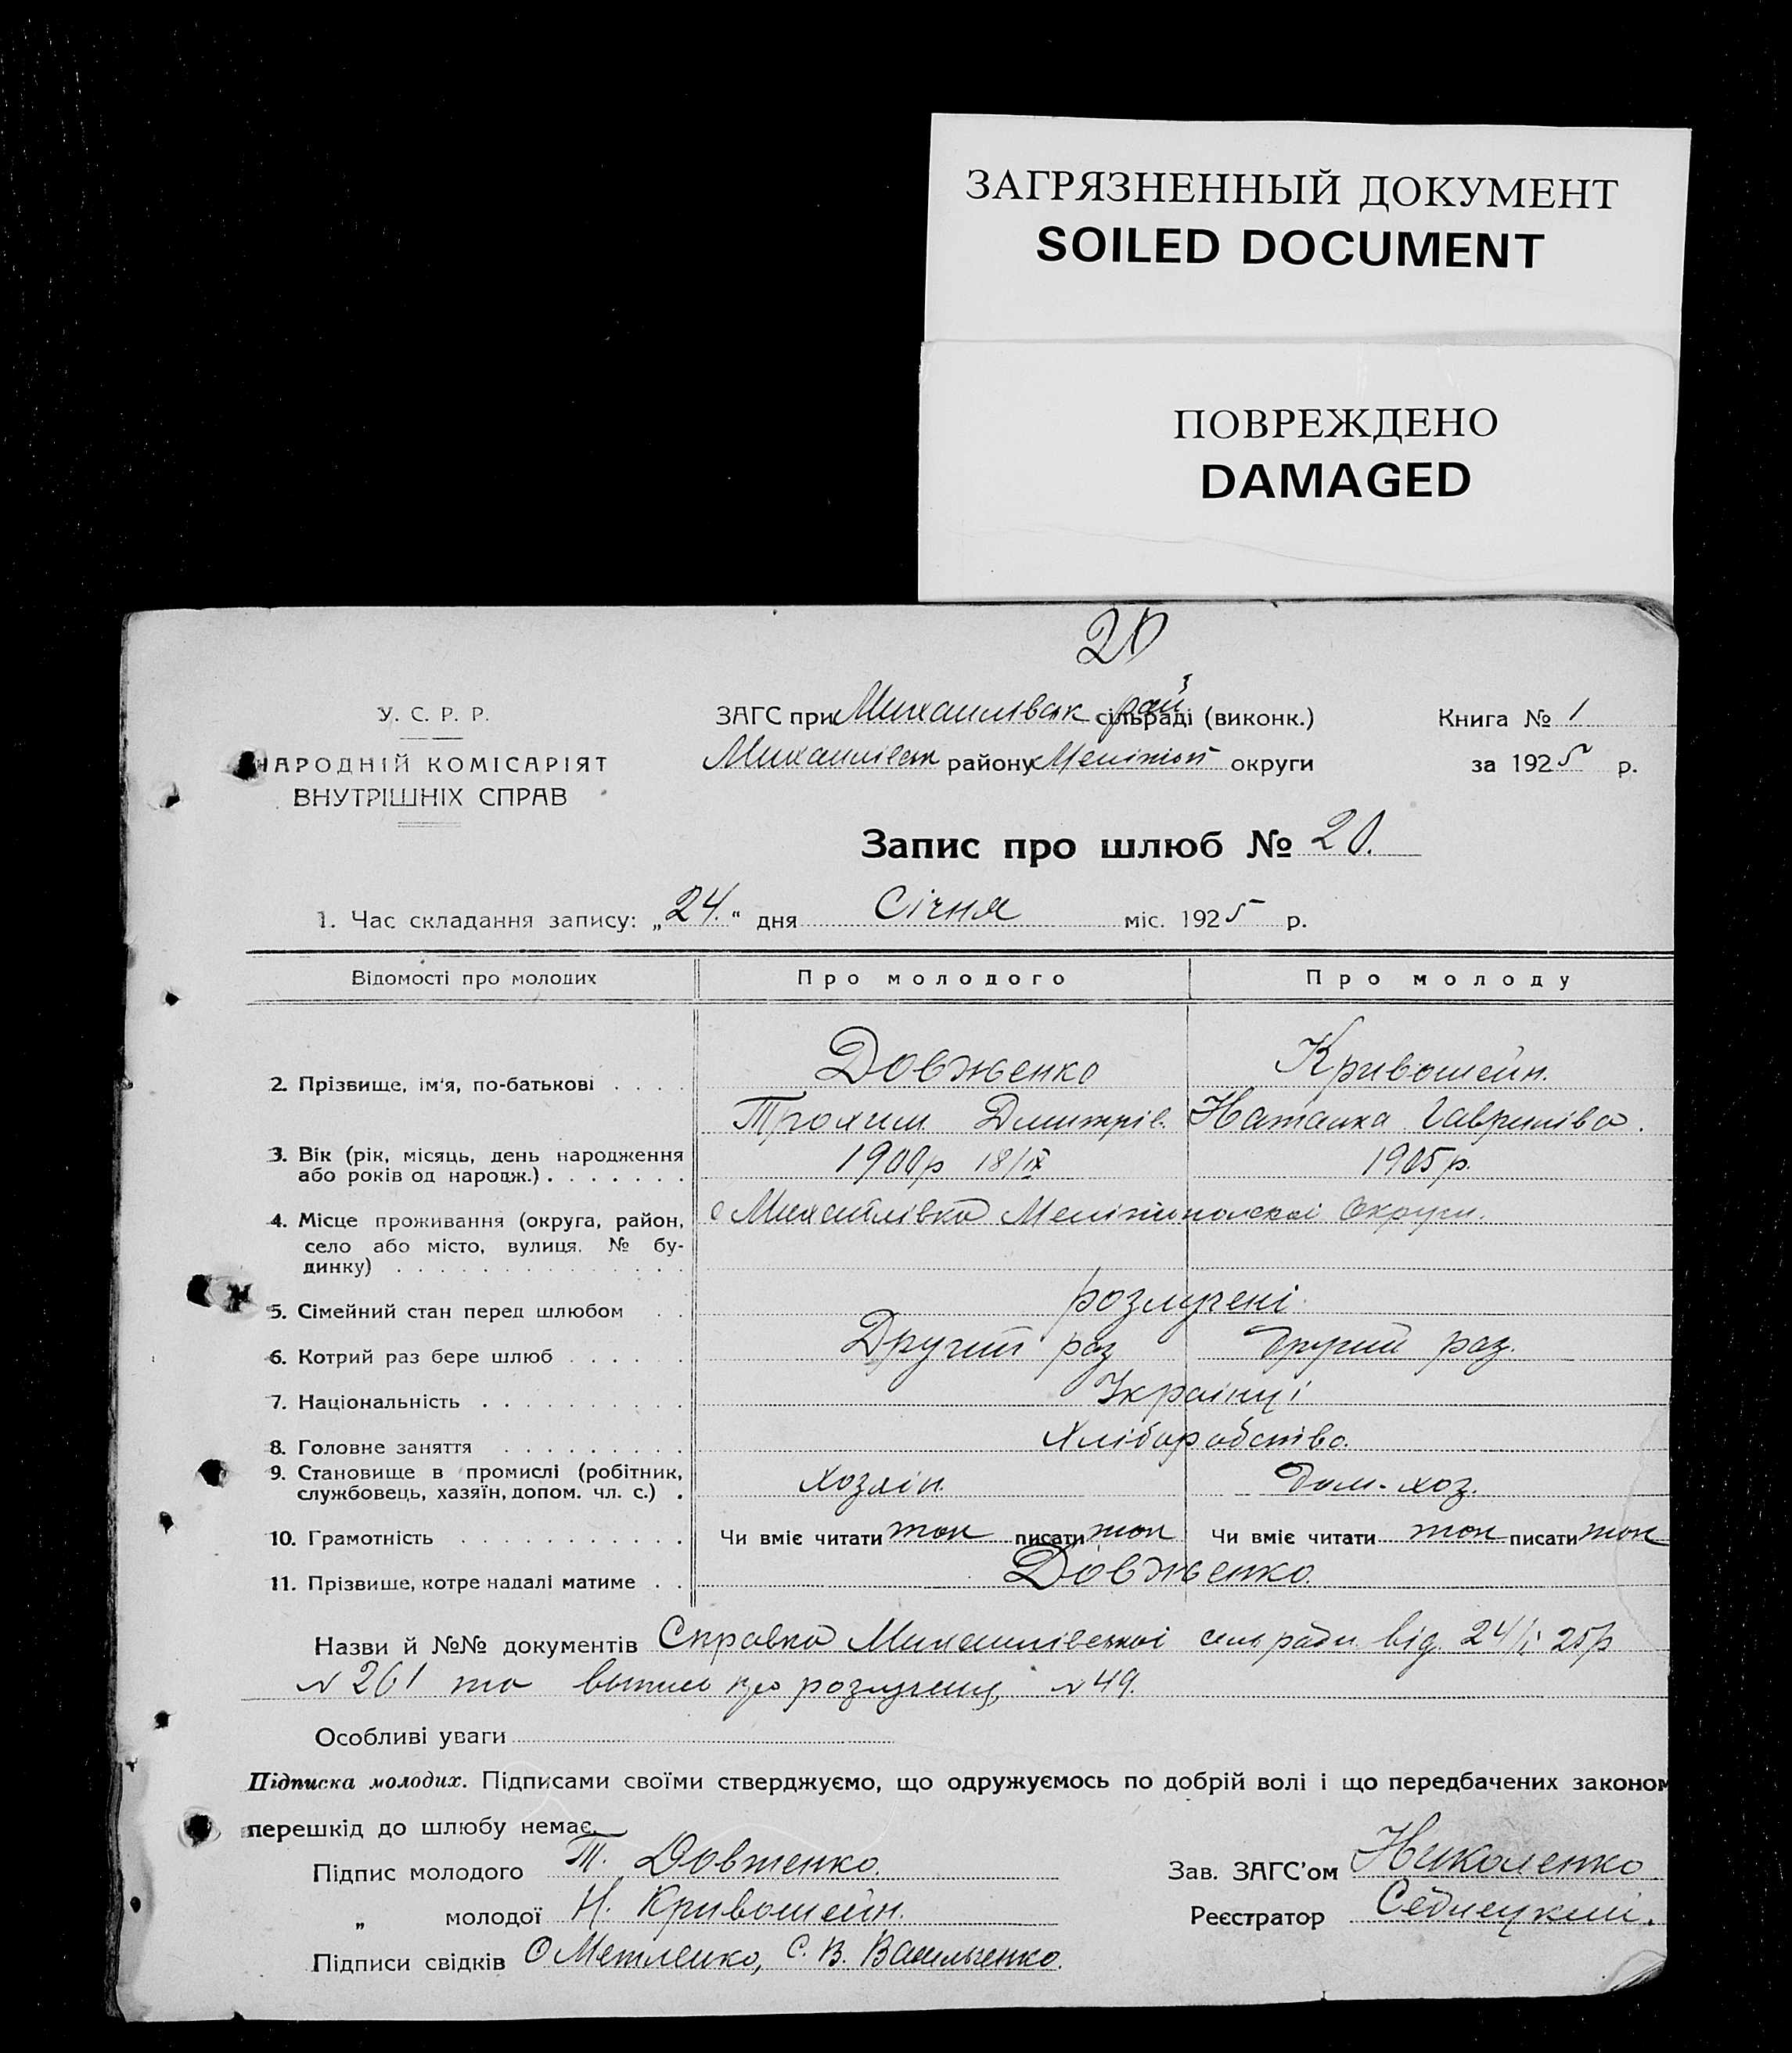 ЗАГРЯЗНЕННЫЙ ДОКУМЕНТ
SOILED DOCUMENT
ПОВРЕЖДЕНО
DAMAGED
20
У. С. Р. Р.
НАРОДНІЙ КОМІСАРІЯТ
ВНУТРІШНІХ СПРАВ
ЗАГС при Михаилівськ рай сільраді (виконк.)
Михаилівськ району Мелітоп округи
Книга № 1
за 1925 р.
Запис про шлюб № 20.
1. Час складання запису: „24.“ дня Січня міс. 1925 р.
Відомості про молодих Про молодого Про молоду
2. Прізвище, ім'я, по-батькові . . . . Довженко Кривошеин.
Трохим Дмитрів. Наталка Гавриліва.
3. Вік (рік, місяць, день народження
або років од народж.) . . . . . . . 1900р 18/IX 1905р.
4. Місце проживання (округа, район, с Михайлівка Мелітопольскоі Округи.
село або місто, вулиця. № бу-
динку) . . . . . . . . . . . . . .
5. Сімейний стан перед шлюбом . . розлучені.
6. Котрий раз бере шлюб . . . . . . Другий раз другий раз.
7. Національність . . . . . . . . . . Украінці
8. Головне заняття . . . . . . . . . Хліборобство.
9. Становище в промислі (робітник,
службовець, хазяїн, допом. чл. с.) . Хозяін. Дом-хоз.
10. Грамотність . . . . . . . . . . . Чи вміє читати так писати так Чи вміє читати так писати так
11. Прізвище, котре надалі матиме . . Довженко.
Назви й №№ документів Справка Михаилівськоі сельради від 24/I 25р
№ 261 та выпись про розлучення № 49.
Особливі уваги
Підписка молодих. Підписами своїми стверджуємо, що одружуємось по добрій волі і що передбачених законом
перешкід до шлюбу немає.
Підпис молодого Т. Довженко.
„ молодої Н. Кривошеин.
Підписи свідків О Метленко, С. В. Васильченко.
Зав. ЗАГС'ом Николенко
Реєстратор Седлецкий.